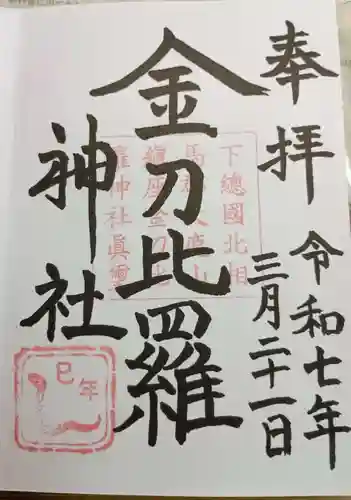 奉拝
令和七年
三月二十一日
金刀比羅
神社
下總國北相
馬
龍座金刀比
羅神社眞璽
巳年